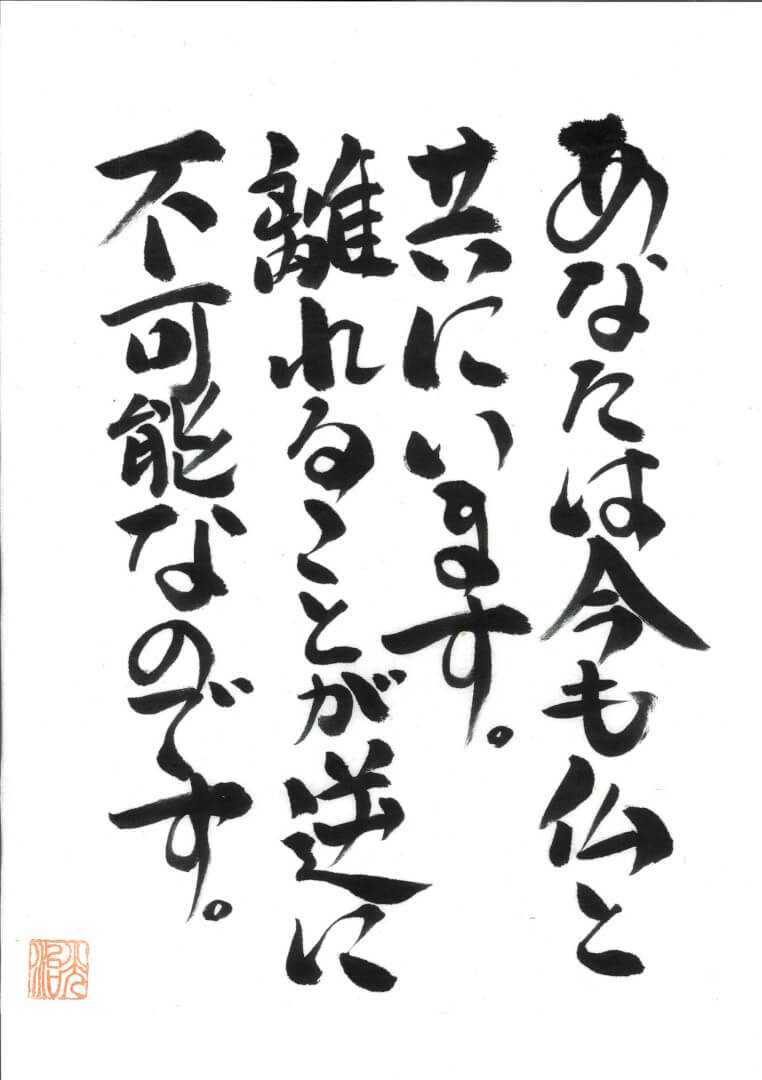 あなたは今も仏と
共にいます。
離れることが逆に
不可能なのです。